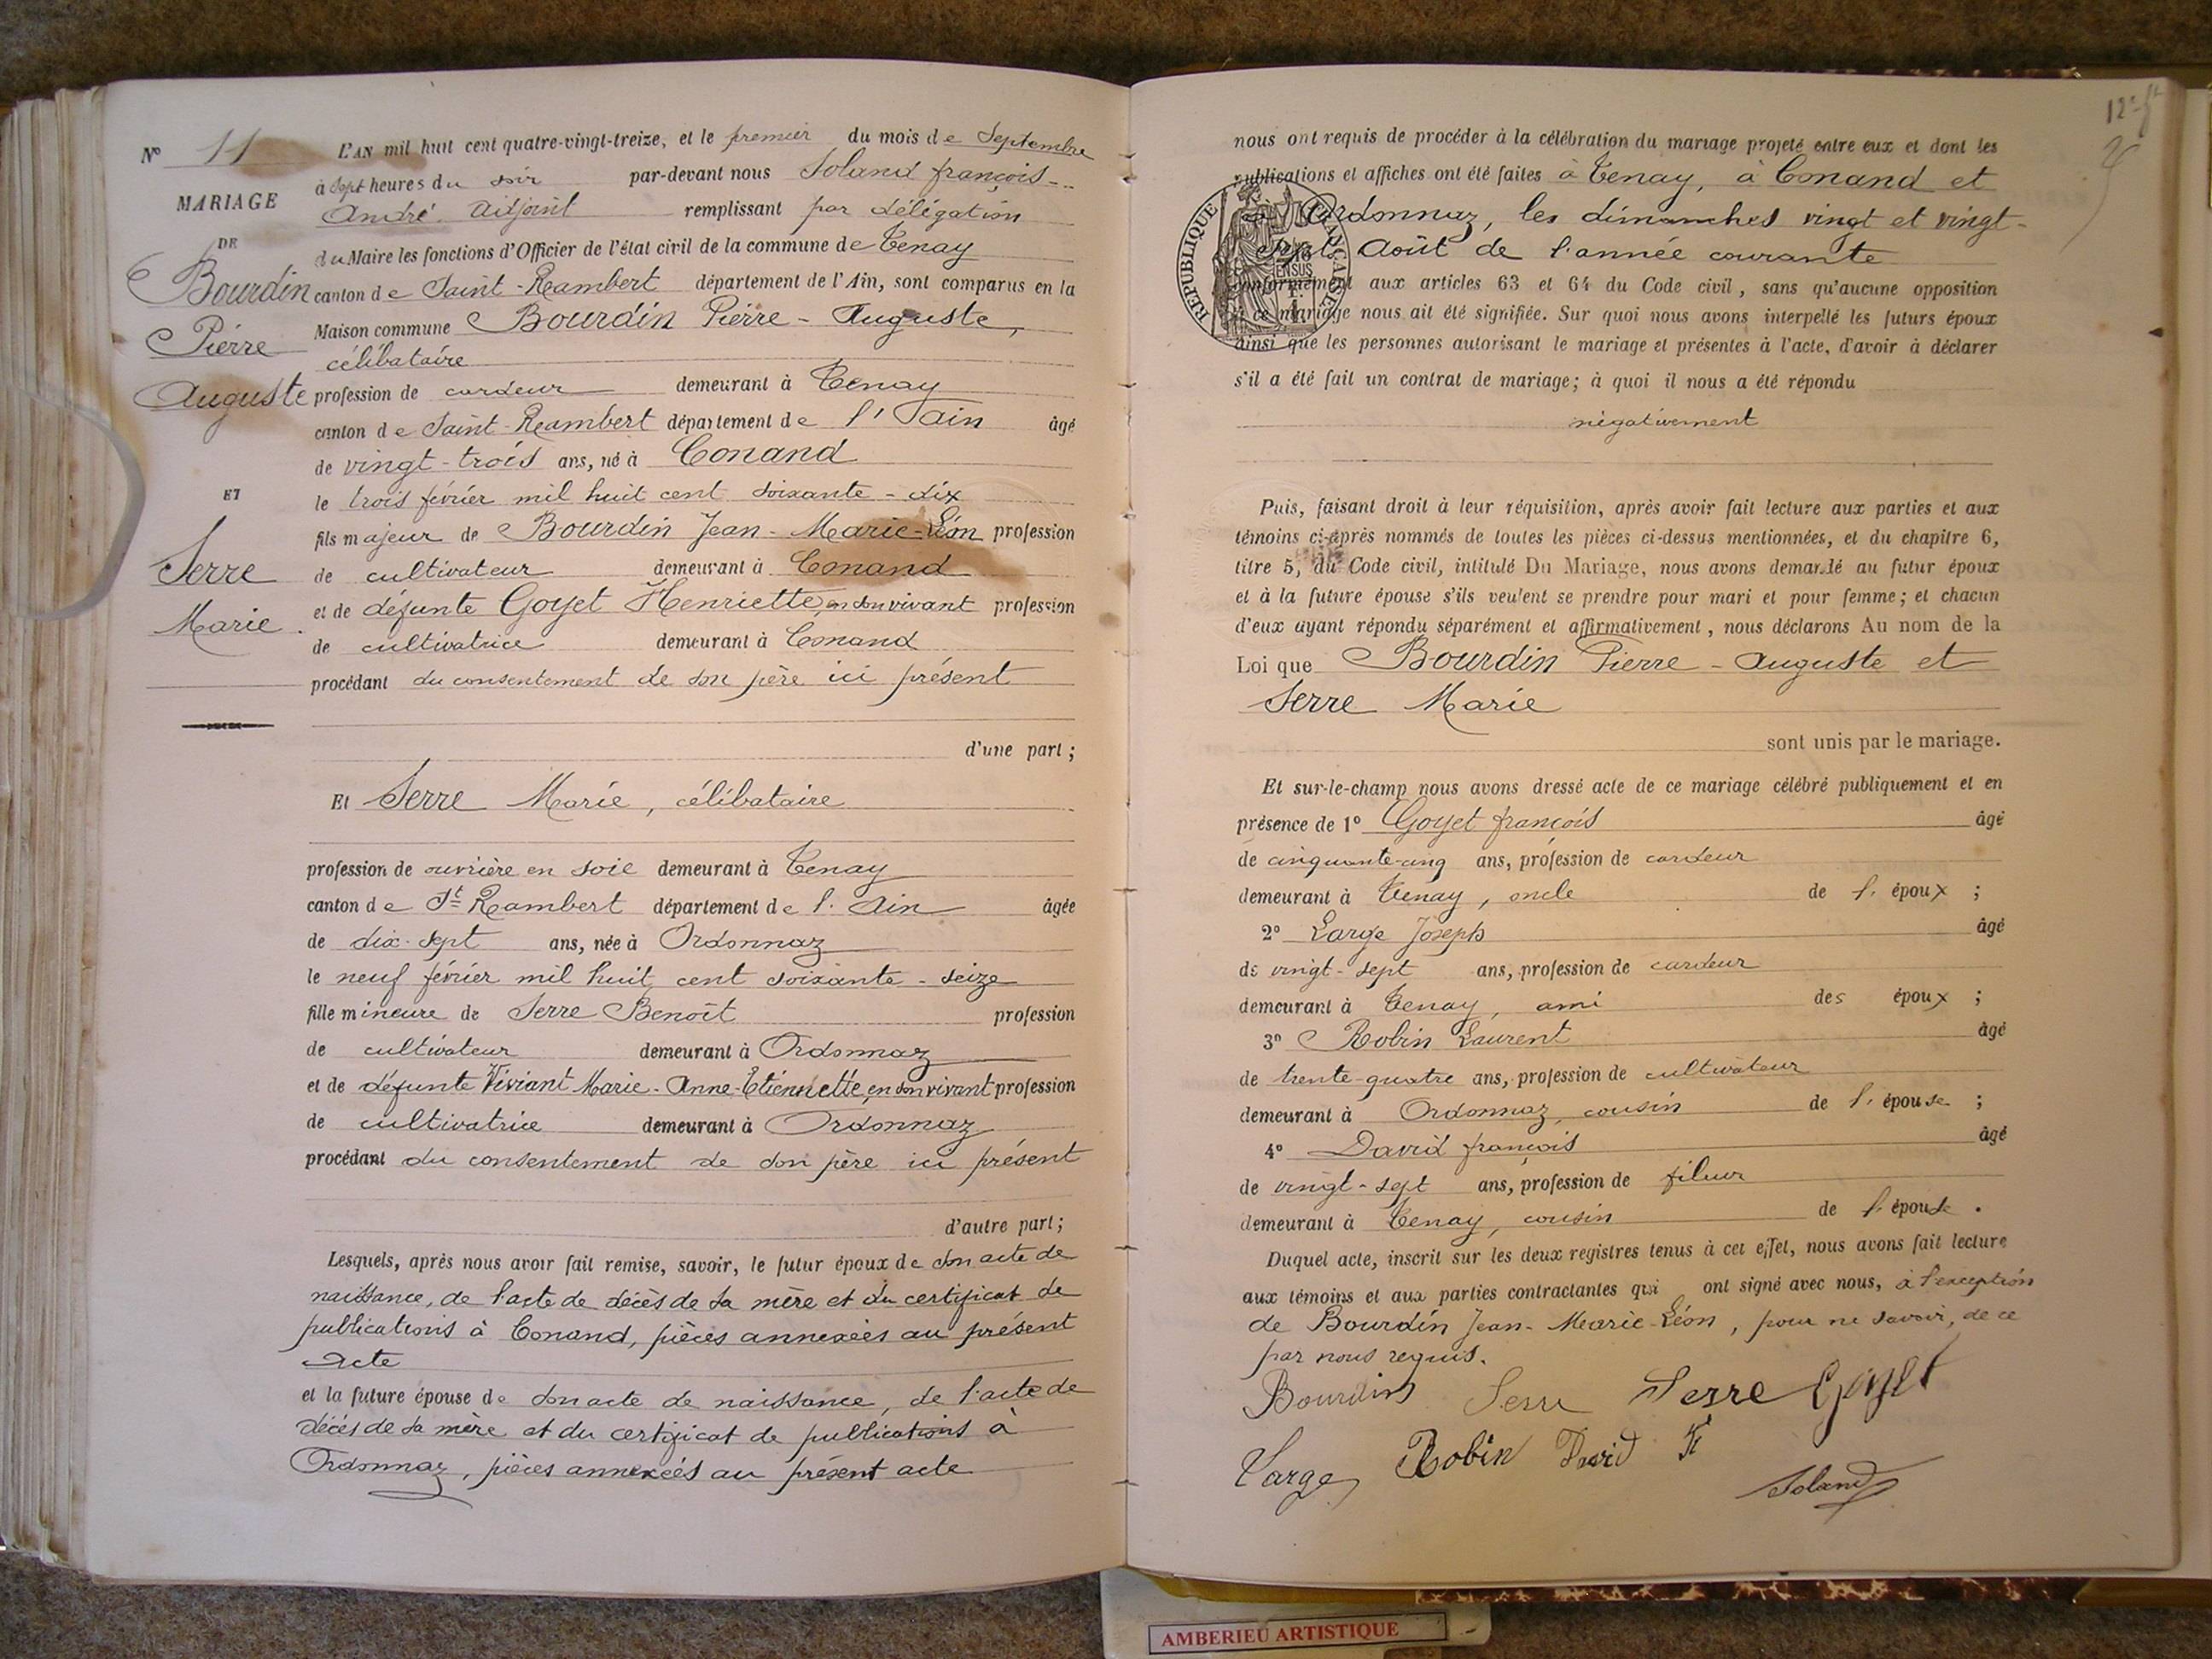 N° 11
MARIAGE
DE
Bourdin
Pierre
Auguste
ET
Serre
Marie.
L'AN mil huit cent quatre-vingt-treize, et le premier du mois de Septembre
à sept heures du soir par-devant nous Soland françois-
André Adjoint remplissant par délégation
du Maire les fonctions d'Officier de l'état civil de la commune de Tenay
canton de Saint-Rambert département de l'Ain, sont comparus en la
Maison commune Bourdin Pierre-Auguste,
célibataire
profession de cardeur demeurant à Tenay
canton de Saint-Rambert département de l'Ain âgé
de vingt-trois ans, né à Conand
le trois février mil huit cent soixante-dix
fils majeur de Bourdin Jean-Marie-Léon profession
de cultivateur demeurant à Conand
et de défunte Goyet Henriette, en son vivant profession
de cultivatrice demeurant à Conand
procédant du consentement de son père ici présent
d'une part;
Et Serre Marie, célibataire
profession de ouvrière en soie demeurant à Tenay
canton de St Rambert département de l'Ain âgée
de dix-sept ans, née à Ordonnaz
le neuf février mil huit cent soixante-seize
fille mineure de Serre Benoît profession
de cultivateur demeurant à Ordonnaz
et de défunte Viviant Marie-Anne-Etiennette, en son vivant profession
de cultivatrice demeurant à Ordonnaz
procédant du consentement de son père ici présent
d'autre part;
Lesquels, après nous avoir fait remise, savoir, le futur époux de son acte de
naissance, de l'acte de décès de sa mère et du certificat de
publications à Conand, pièces annexées au présent
acte
et la future épouse de son acte de naissance, de l'acte de
décès de sa mère et du certificat de publications à
Ordonnaz, pièces annexées au présent acte
nous ont requis de procéder à la célébration du mariage projeté entre eux et dont les
publications et affiches ont été faites à Tenay, à Conand et
à Ordonnaz, les dimanches vingt et vingt-
sept Août de l'année courante
conformément aux articles 63 et 64 du Code civil, sans qu'aucune opposition
à ce mariage nous ait été signifiée. Sur quoi nous avons interpellé les futurs époux
ainsi que les personnes autorisant le mariage et présentes à l'acte, d'avoir à déclarer
s'il a été fait un contrat de mariage; à quoi il nous a été répondu
négativement
REPUBLIQUE FRANÇAISE
Puis, faisant droit à leur réquisition, après avoir fait lecture aux parties et aux
témoins ci-après nommés de toutes les pièces ci-dessus mentionnées, et du chapitre 6,
titre 5, du Code civil, intitulé Du Mariage, nous avons demandé au futur époux
et à la future épouse s'ils veulent se prendre pour mari et pour femme; et chacun
d'eux ayant répondu séparément et affirmativement, nous déclarons Au nom de la
Loi que Bourdin Pierre-Auguste et
Serre Marie
sont unis par le mariage.
Et sur-le-champ nous avons dressé acte de ce mariage célébré publiquement et en
présence de 1° Goyet françois âgé
de cinquante-cinq ans, profession de cardeur
demeurant à Tenay, oncle de l'époux;
2° Large Joseph âgé
de vingt-sept ans, profession de cardeur
demeurant à Tenay, ami des époux;
3° Robin Laurent âgé
de trente-quatre ans, profession de cultivateur
demeurant à Ordonnaz, cousin de l'épouse;
4° David françois âgé
de vingt-sept ans, profession de fileur
demeurant à Tenay, cousin de l'épouse.
Duquel acte, inscrit sur les deux registres tenus à cet effet, nous avons fait lecture
aux témoins et aux parties contractantes qui ont signé avec nous, à l'exception
de Bourdin Jean-Marie-Léon, pour ne savoir, de ce
par nous requis.
Bourdin Serre Serre Goyet
Large Robin David Fs
Soland
AMBERIEU ARTISTIQUE